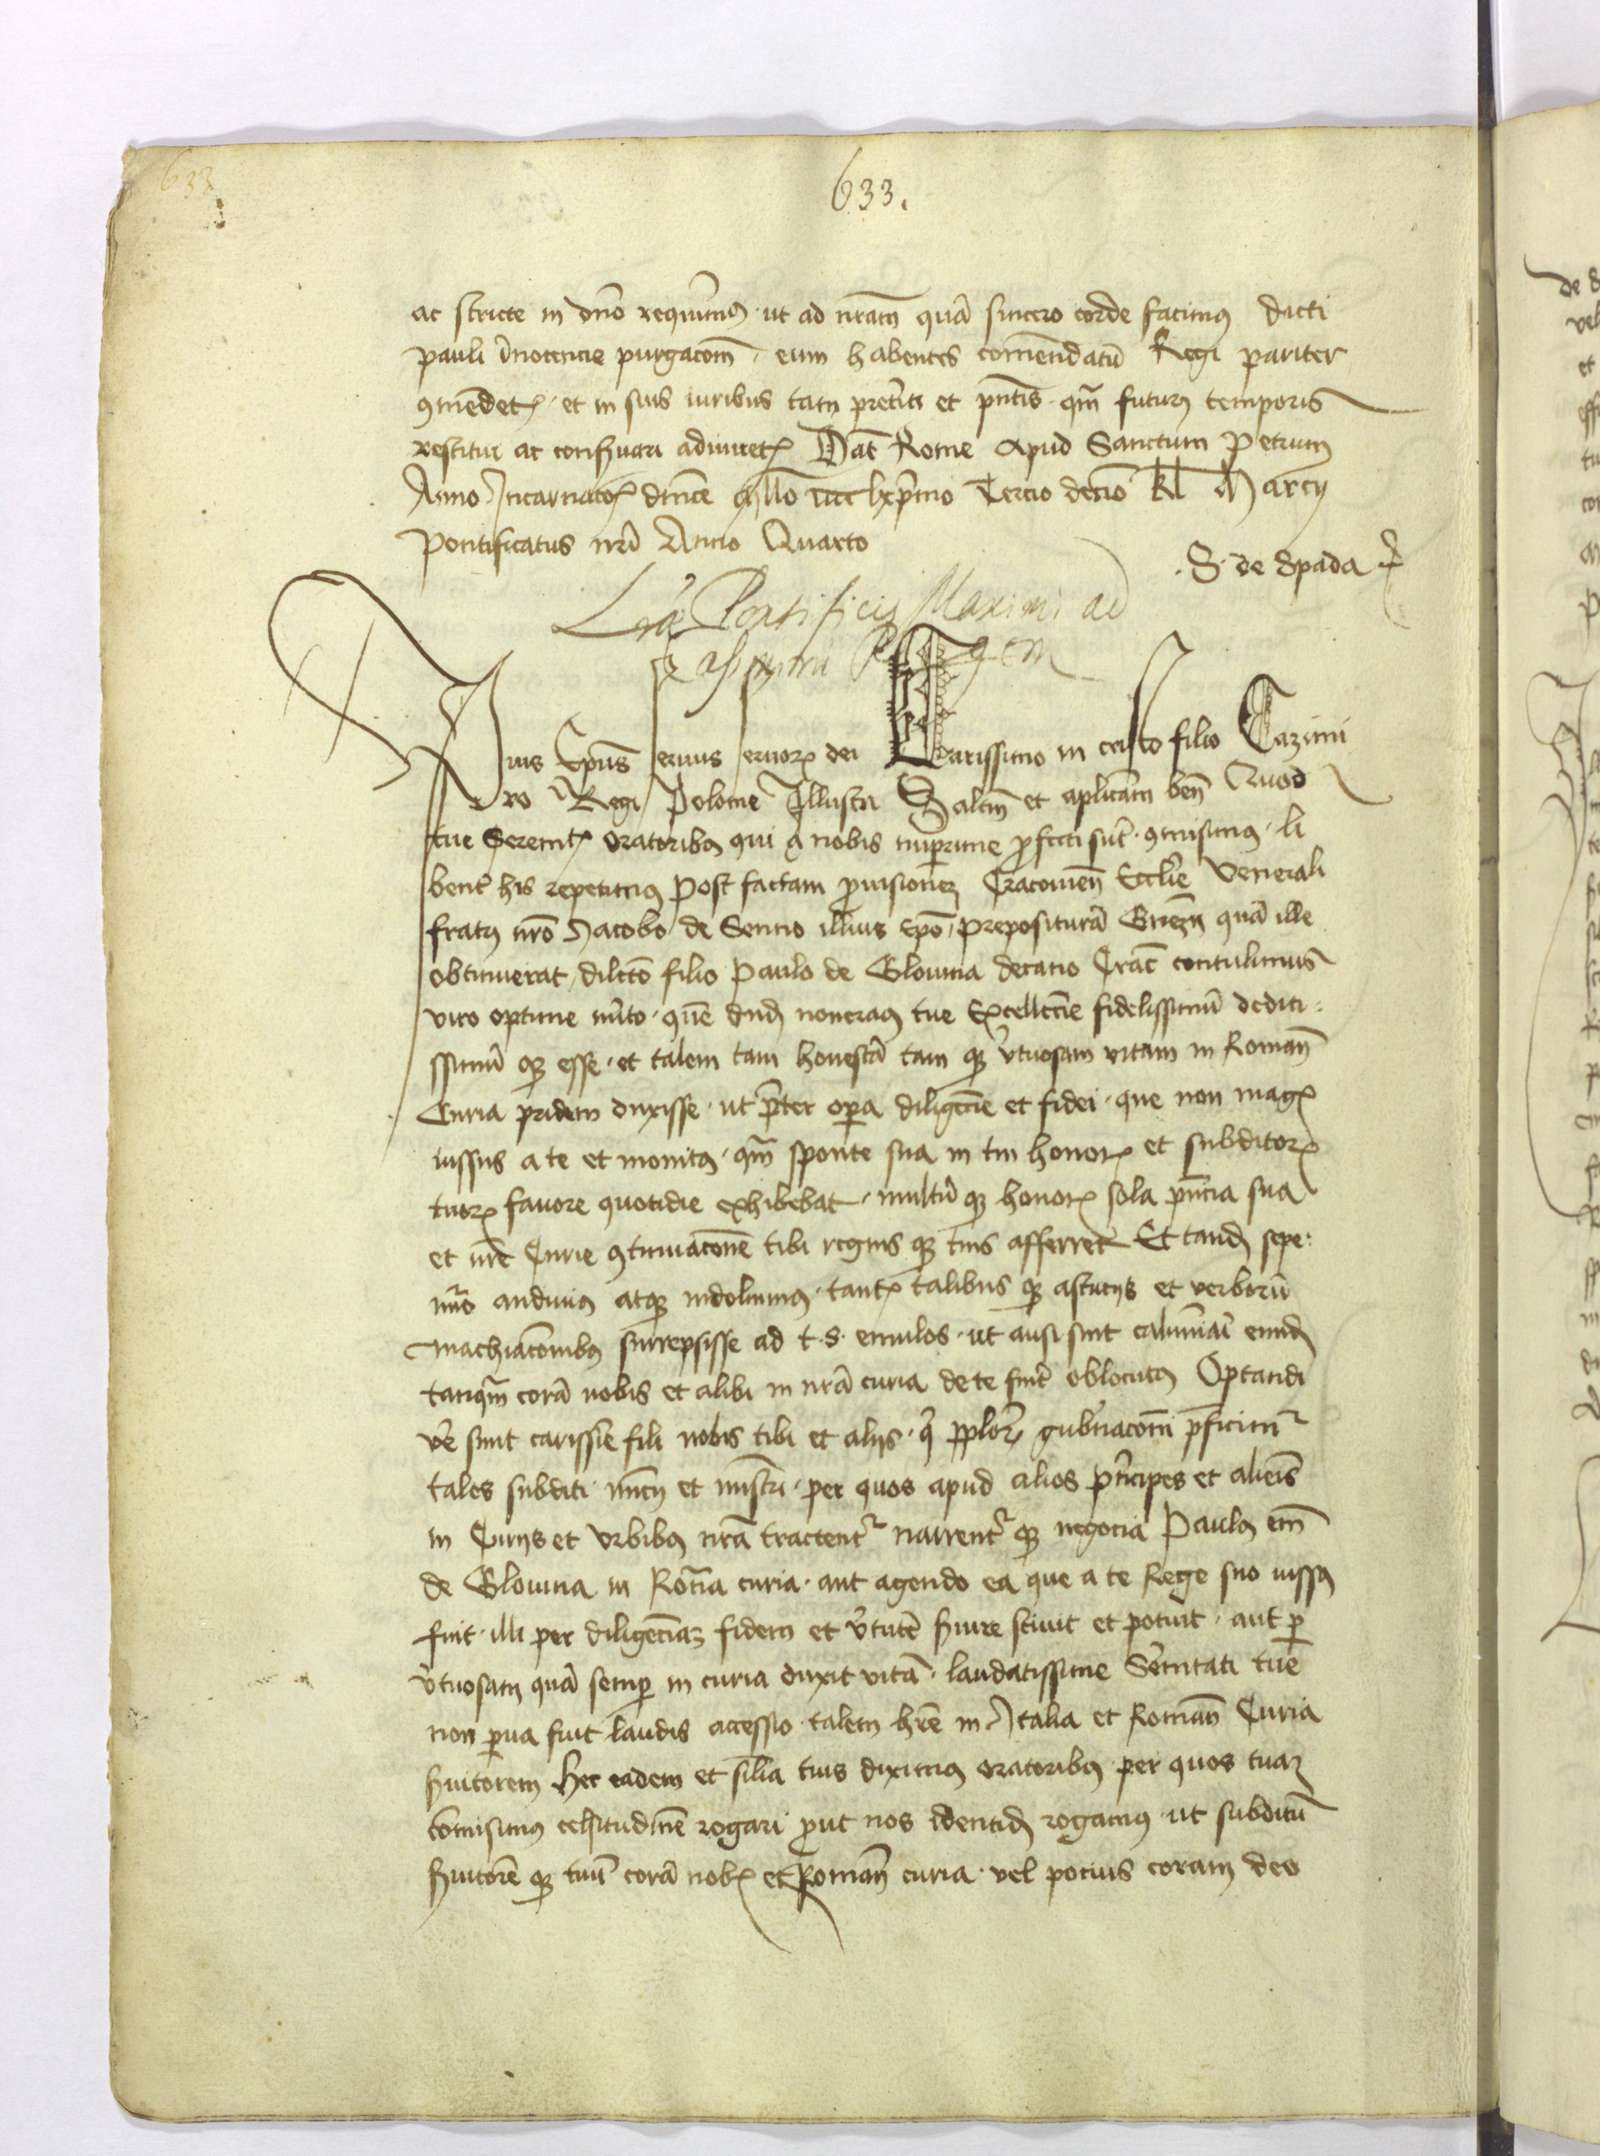 633
633.
ac stricte in dño requirimus · ut ad nr̃am quã sincero corde facimus dicti
pauli Innocencie purgacõm · eum habentes comendatũ Regi pariter
ꝯmẽdetꝭ · et in suis iuribus tam preteriti et pñtis · qm̃ futuri temporis
restitui ac conßuari adiuuetꝭ Dat̃ Rome apud Sanctum Petrum
Anno Incarnatoꝭ dñice Millo cccc lxpͥmo Tercio decio kl̃ Marcij
Pontificatus nrĩ Anno Quarto
· S· de Spada
Lrã Pontificis Maximi ad
Casimirũ Regem
Pius Ep̃us seruus seruorꝝ dei Carissimo in cristo filio Cazimi
ro Regi Polonie Illustri Saltm̃ et aplicam ben̄ Quod
tue Serenitꝭ oratoribus qui a nobis nuperrime ꝓfecti sũt · ꝯmisimus · li
bent̃ his repetimus Post factam ꝓuisionem Cracouien̄ Ecclie Venerabli
fratri nrõ Jacobo de Senno illius Epõ, preposituram Gnezñ quã ille
obtinuerat, dilcto filio Paulo de Glowna decano Crac̃ contulimus
viro optime merito · quẽ dudum noueramus tue Excellencie fidelissimũ dediti⸗
ssimũ qꝫ esse · et talem tam honestã tam qꝫ virtuosam vitam in Romañ
Curia pridem duxisse · ut preter opera diligencie et fidei · que non magꝭ
iussus a te et monitus · qm̃ sponte sua in tui honorꝭ et subditorꝝ
tuorꝝ fauore quotidie exhibebat · multũ qꝫ honorꝭ sola pñcia sua
et nrẽ Curie ꝯtinuacione tibi regnis qꝫ tuis afferret Et tandem sepe⸗
nũo audiuimus atqꝫ indoluimus · tantꝭ talibus qꝫ astucijs et verborũ
machiacõnibus surrepsisse ad t· s· emulos · ut ausi sint calumniari eundem
tanqm̃ corã nobis et alibi in nrã curia de te fuerit oblocutus Optandi
vero sunt carissie fili nobis tibi et alijs · qui pplorꝝ gubnacõni p̃ficimur
tales subditi nuncij et ministri · per quos apud alios principes et alienis
in Curijs et vrbibus nr̃a tractent᷑ narrent᷑ qꝫ negocia Paulus em̃
de Glowna in Romana curia · aut agendo ea que a te Rege suo iussa
fuit · illi per diligenciam fidem et vtutẽ ßuire sciuit et potuit · aut per
vtuosam quã semper in curia duxit vitã · laudatissime Serenitati tue
non parua fuit laudis accessio talem habere in Italia et Romañ Curia
ßuitorem Hec eadem et similia tuis diximus oratoribus per quos tuam
comisimus celsitudinẽ rogari prout nos identidem rogamus · ut subditũ
ßuitorẽ qꝫ tuũ corã nobꝭ et Romañ curia · vel pocius coram deo